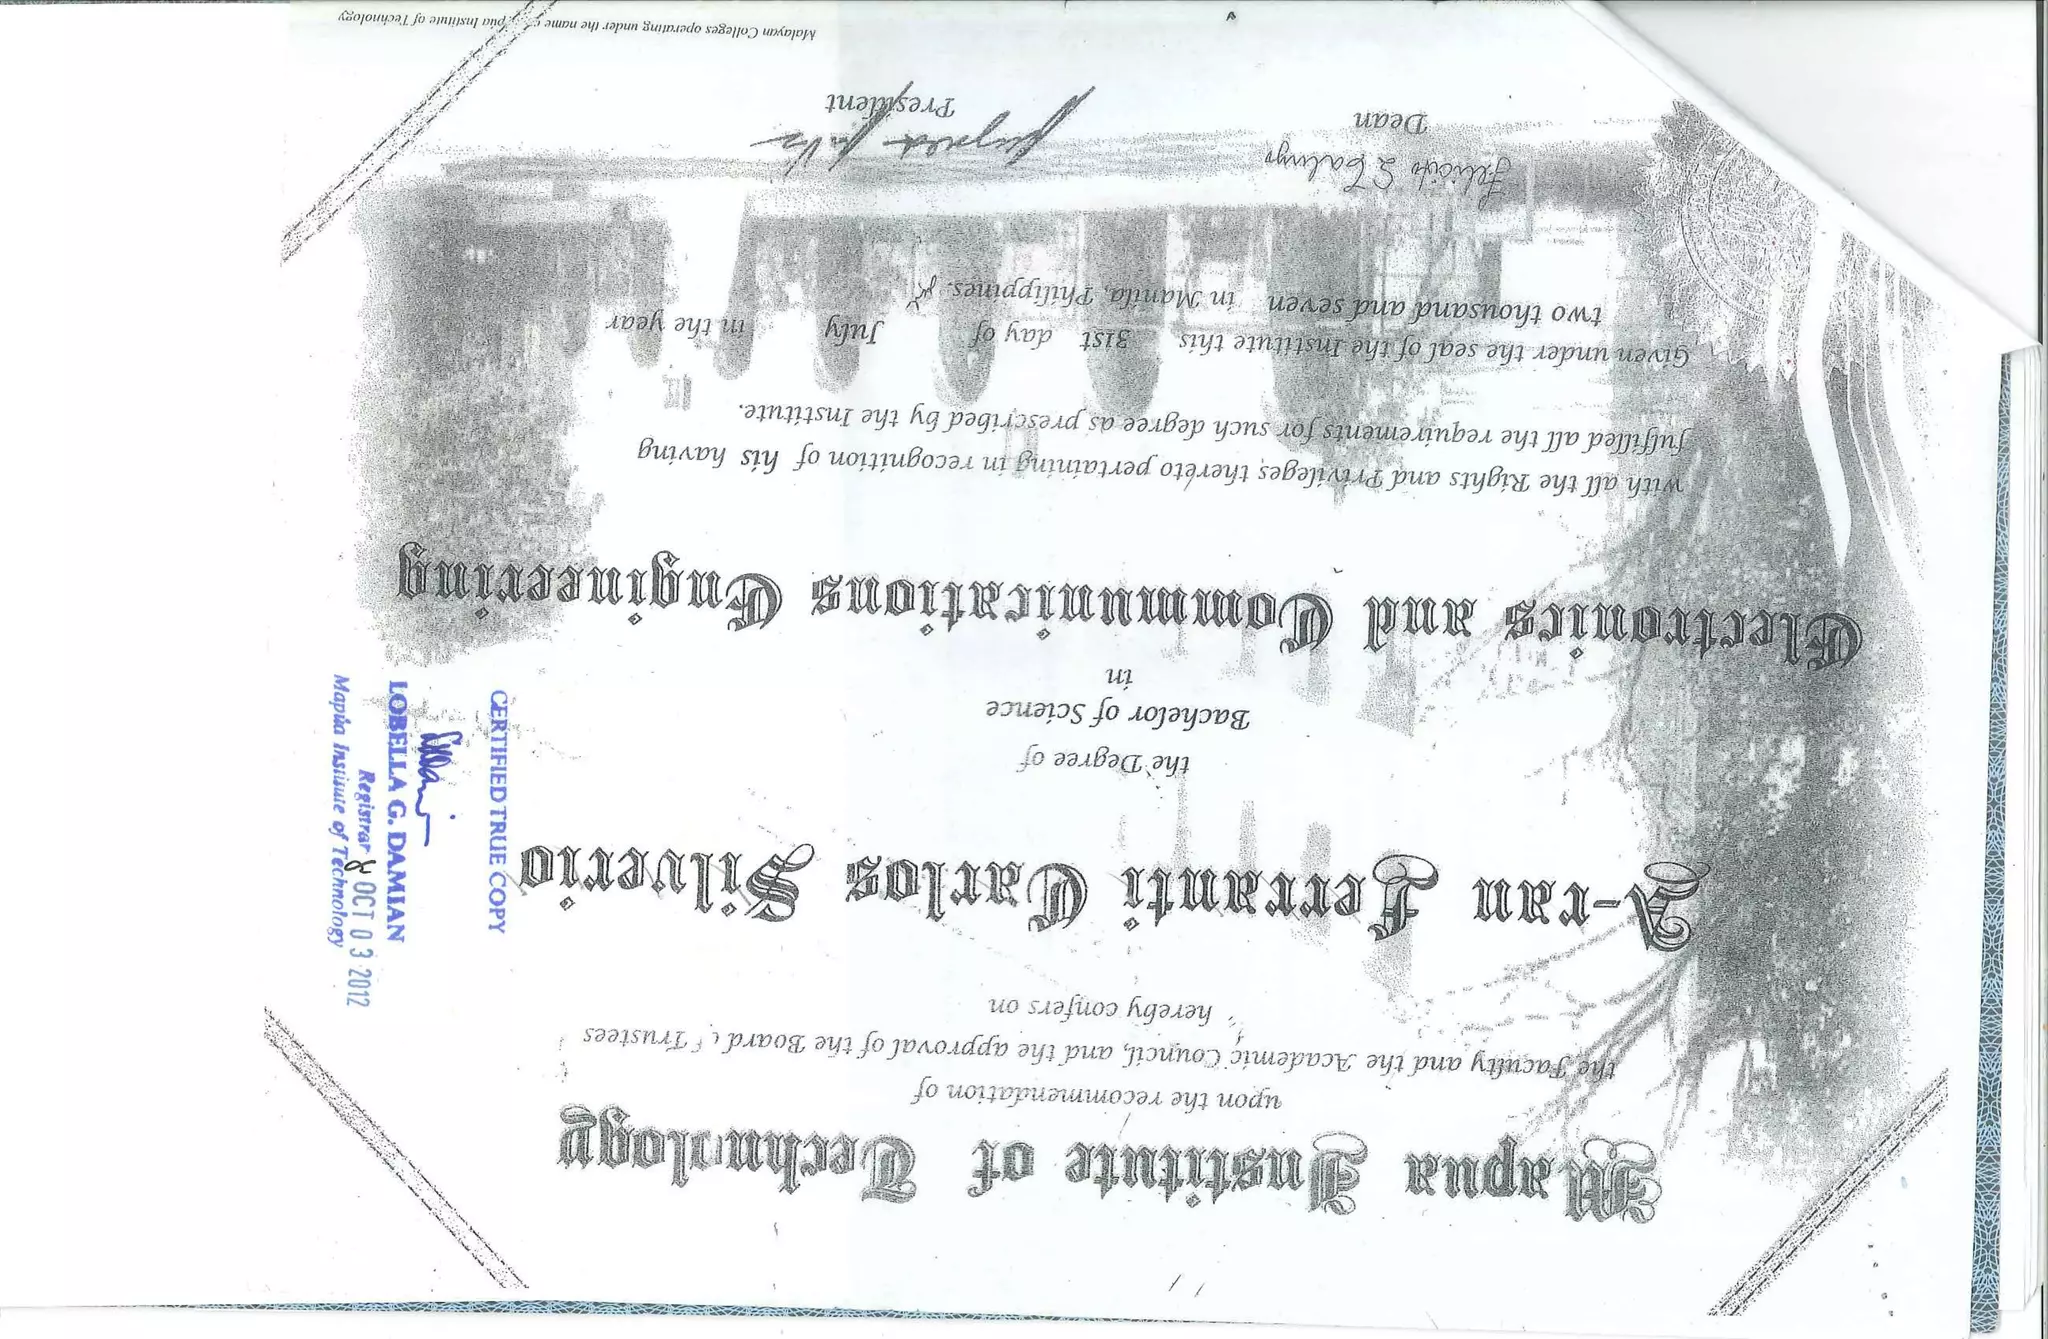 Mapua Institute of Technology
upon the recommendation of
the Faculty and the Academic Council, and the approval of the Board of Trustees
hereby confers on
A-ran Ferranti Carlos Silverio
the Degree of
Bachelor of Science
in
Electronics and Communications Engineering
with all the Rights and Privileges thereto pertaining in recognition of his having
fulfilled all the requirements for such degree as prescribed by the Institute.
Given under the seal of the Institute this 31st day of July in the year
two thousand and seven in Manila, Philippines.
Dean
President
Malayan Colleges operating under the name Institute of Technology
CERTIFIED TRUE COPY
LOBELLA G. DAMIAN
Registrar OCT 03 2012
Mapúa Institute of Technology